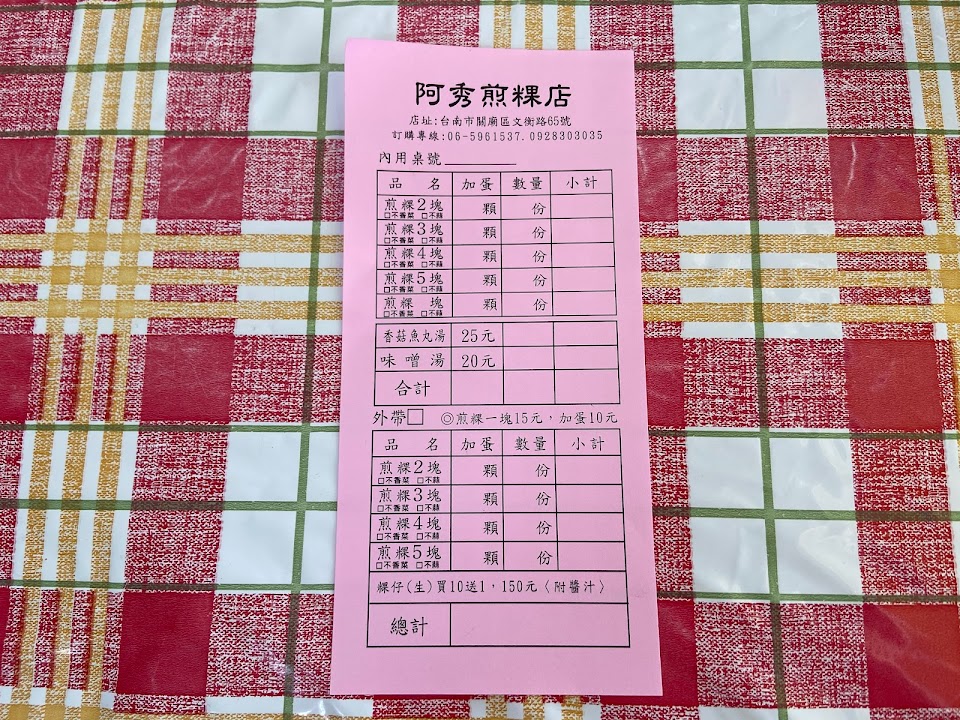 阿秀煎粿店
店址:台南市關廟區文衡路65號
訂購專線:06-5961537.0928303035
內用桌號
品 名 加蛋 數量 小計
煎粿2塊 顆 份
□不香菜 □不蒜
煎粿3塊 顆 份
□不香菜 □不蒜
煎粿4塊 顆 份
□不香菜 □不蒜
煎粿5塊 顆 份
□不香菜 □不蒜
煎粿 塊 顆 份
□不香菜 □不蒜
香菇魚丸湯 25元
味噌湯 20元
合計
外帶□ ◎煎粿一塊15元,加蛋10元
品 名 加蛋 數量 小計
煎粿2塊 顆 份
□不香菜 □不蒜
煎粿3塊 顆 份
□不香菜 □不蒜
煎粿4塊 顆 份
□不香菜 □不蒜
煎粿5塊 顆 份
□不香菜 □不蒜
粿仔(生)買10送1,150元〈附醬汁〉
總計